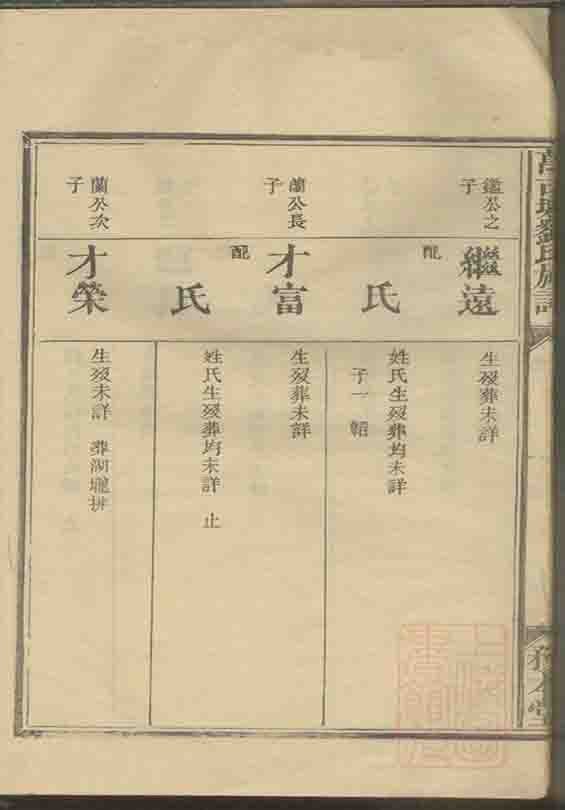 劉氏族譜
鑑公之子
繼遠
生歿葬未詳
配
氏
姓氏生歿葬均未詳
子一 韜
蘭公長子
才富
生歿葬未詳
配
氏
姓氏生歿葬均未詳 止
蘭公次子
才榮
生歿未詳 葬湖壠排